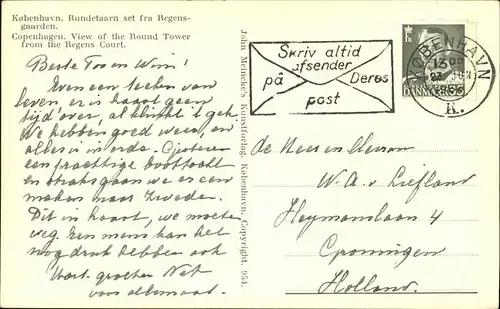 København. Rundetaarn set fra Regens-
gaarden.
Copenhagen. View of the Round Tower
from the Regens Court.
Beste To en Wim!
Even een teeken van
leven er is haast geen
tijd over, al klinkt 't gek.
We hebben goed weer, en
alles is in orde. Gisteren
een prachtige boottocht
en straks gaan we er een
maken naar Zweden.
Dit in haast, we moeten
weg. Een mens kan het
nog druk hebben ook
Hart. groeten Net
voor allemaal.
John Meincke's Kunstforlag, København. Copyright. 954.
Skriv altid
afsender
på Deres
post
KØBENHAVN
K.
DANMARK
de Heer en Mevrouw
W. A. v. Liefland
Heymanslaan 4
Groningen
Holland.